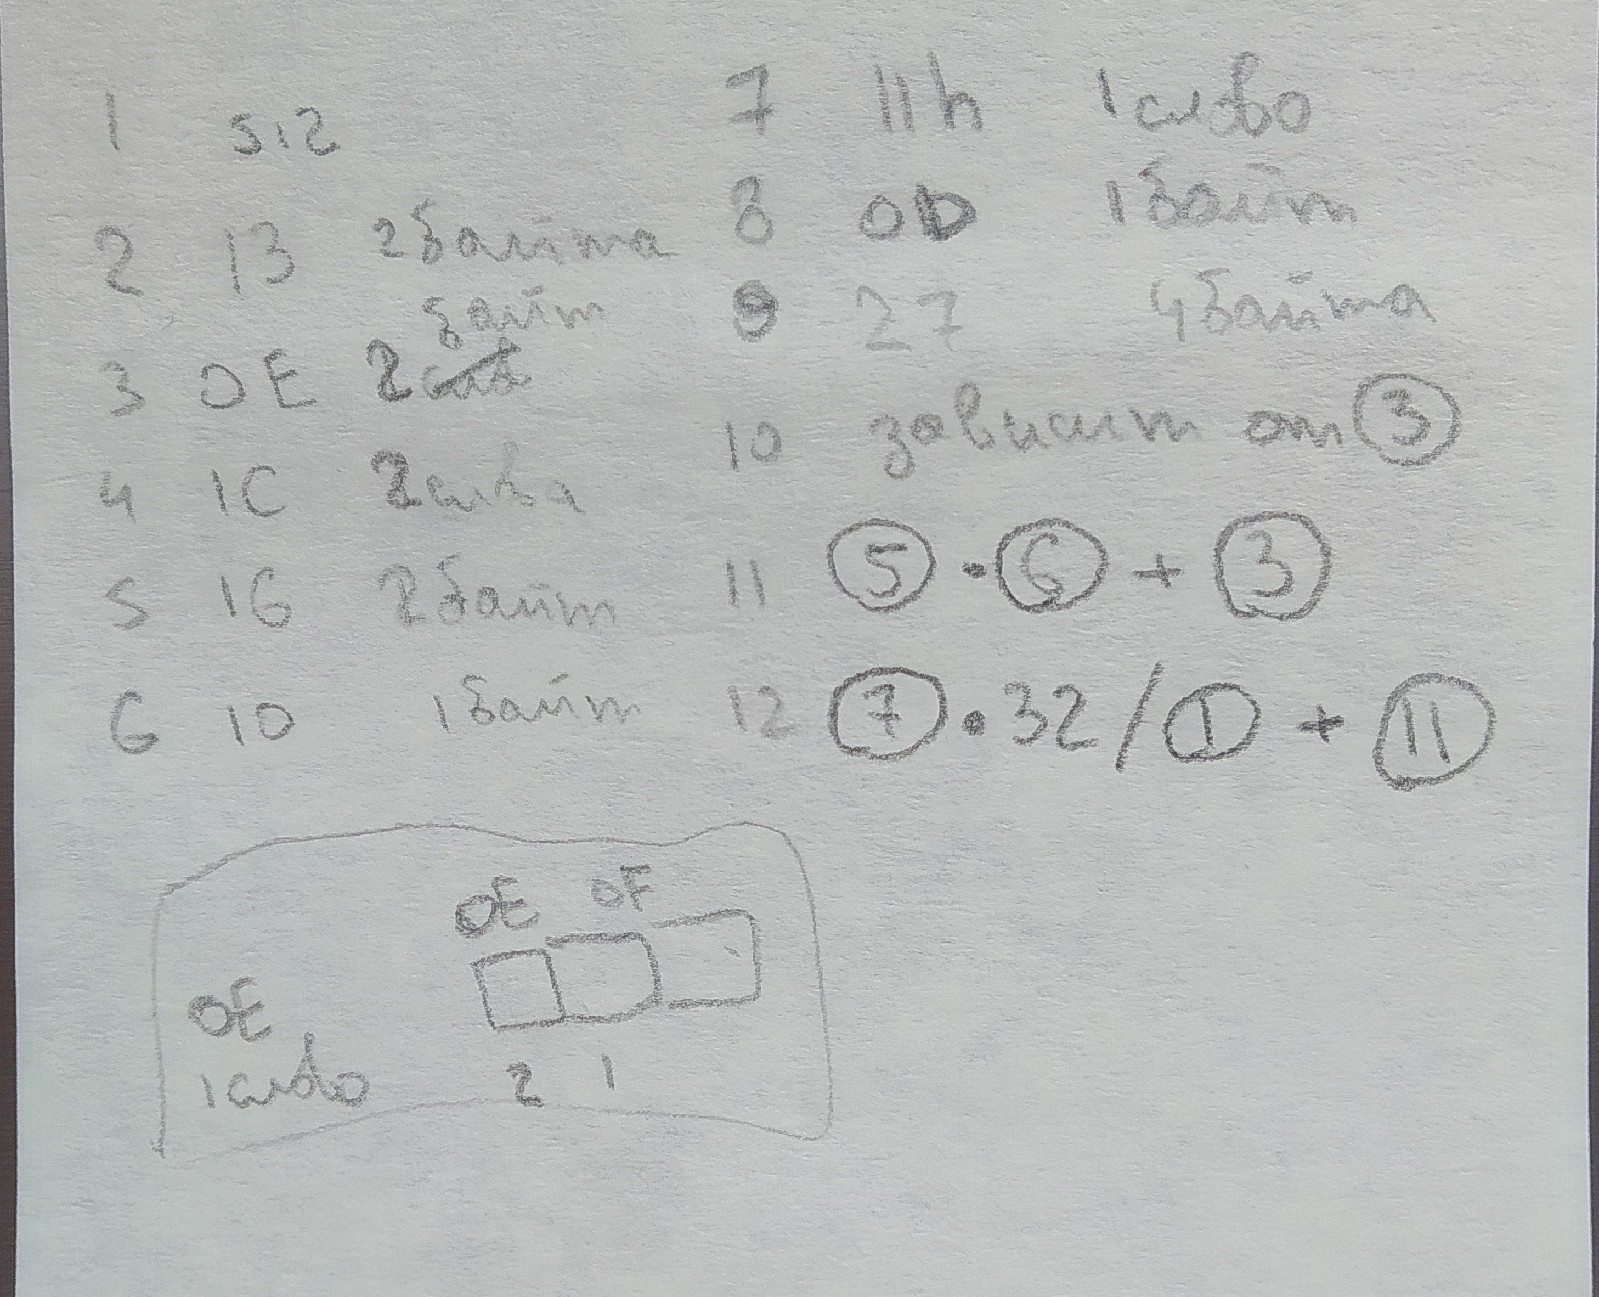 1 512
2 13 2 байта
байт
3 0E 2 слова
4 1C 2 слова
5 16 2 байт
6 10 1 байт
7 11h 1 слово
8 0D 1 байт
9 27 4 байта
10 зависит от 3
11 5 · 6 + 3
12 7 · 32 / 1 + 11
0E 0F
0E
1 слово
2 1